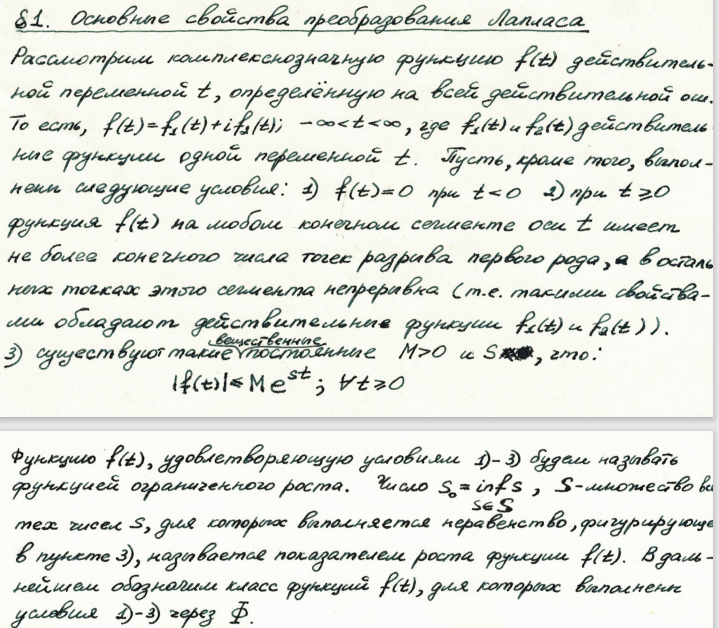 §1. Основные свойства преобразования Лапласа
Рассмотрим комплекснозначную функцию f(t) действитель-
ной переменной t, определённую на всей действительной оси.
То есть, f(t)=f₁(t)+if₂(t); -∞<t<∞, где f₁(t) и f₂(t) действитель
ные функции одной переменной t. Пусть, кроме того, выпол-
нены следующие условия: 1) f(t)=0 при t<0 2) при t⩾0
функция f(t) на любом конечном сегменте оси t имеет
не более конечного числа точек разрыва первого рода, а в осталь
ных точках этого сегмента непрерывна (т.е. такими свойства-
ми обладают действительные функции f₁(t) и f₂(t)).
вещественные
3) существуют такие постоянные M>0 и S, что:
|f(t)|⩽Me^{st}; ∀t⩾0
Функцию f(t), удовлетворяющую условиям 1)-3) будем называть
функцией ограниченного роста. Число S₀=inf s, S-множество
s∈S
тех чисел s, для которых выполняется неравенство, фигурирующе
в пункте 3), называется показателем роста функции f(t). В даль-
нейшем обозначим класс функций f(t), для которых выполнены
условия 1)-3) через Φ.